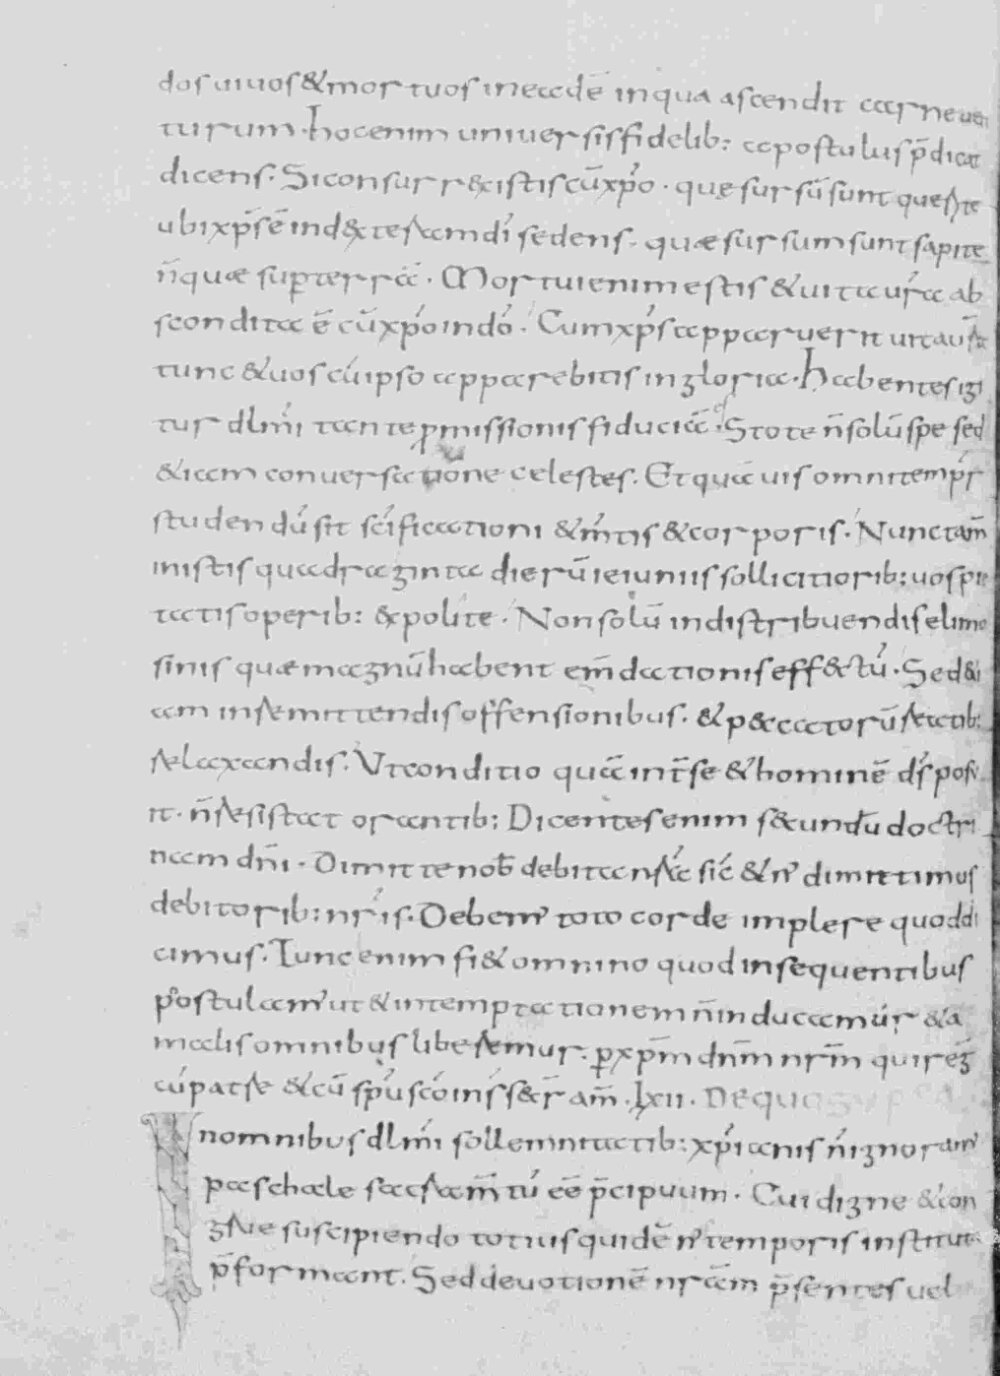 dos uiuos & mortuos in eadē in qua ascendit carne uen
turum. hoc enim uniuersis fidelib; apostulus p̄dicat
dicens. Si consurr&istis cū xp̄o. quę sursū sunt querite
ubi xp̄s ē in dextera dī sedens. quæ sursum sunt sapite
n̄ quæ sup̱ terrā. Mortui enim estis & uita ur̄a ab
scondita ē cū xp̄o in dō. Cum xp̄s apparuerit uita ur̄a
tunc & uos cū ipso apparebitis in gloria. habentes igi
tur dlm̄i tante p̱missionis fiduciā. Stote n̄ solū spe sed
&iam conuersatione celestes. Et quāuis omni temp̄r
studendū sit sc̄ificationi & m̄tis & corporis. Nunc tam̄
in istis quadraginta dierū ieiuniis sollicitiorib; uos pie
tatis operib; expolite. Non solū in distribuendis elimo
sinis quæ magnū habent em̄dationis eff&ctū. Sed &i
am in remittendis offensionibus. & p&catorū reatib;
relaxandis. Ut conditio quā int̄ se & hominē d̄s posu
it. n̄ resistat orantib; Dicentes enim s&undū doctri
nam dn̄i. Dimitte nob̄ debita nr̄a sic̄ & n̄ dimittimus
debitorib; nr̄is. Debem̄ toto corde implere quod di
cimus. Tunc enim fi& omnino quod in sequentibus
postulam̄ ut & in temptationem n̄ inducamur & a
malis omnibus liberemur. p̱ xp̄m dn̄m nr̄m qui reḡ
cū patre & cū sp̄u sc̄o in s̄ s&r̄ am̄. lxii. DE quo supra
In omnibus dlm̄i sollemnitatib; xp̄ianis n̄ ignoram̄
paschale sacram̄tū eē p̄cipuum. Cui digne & con
grue suscipiendo totius quidē n̄ temporis instituta
p̄formant. Sed deuotionē nr̄am p̄sentes uel